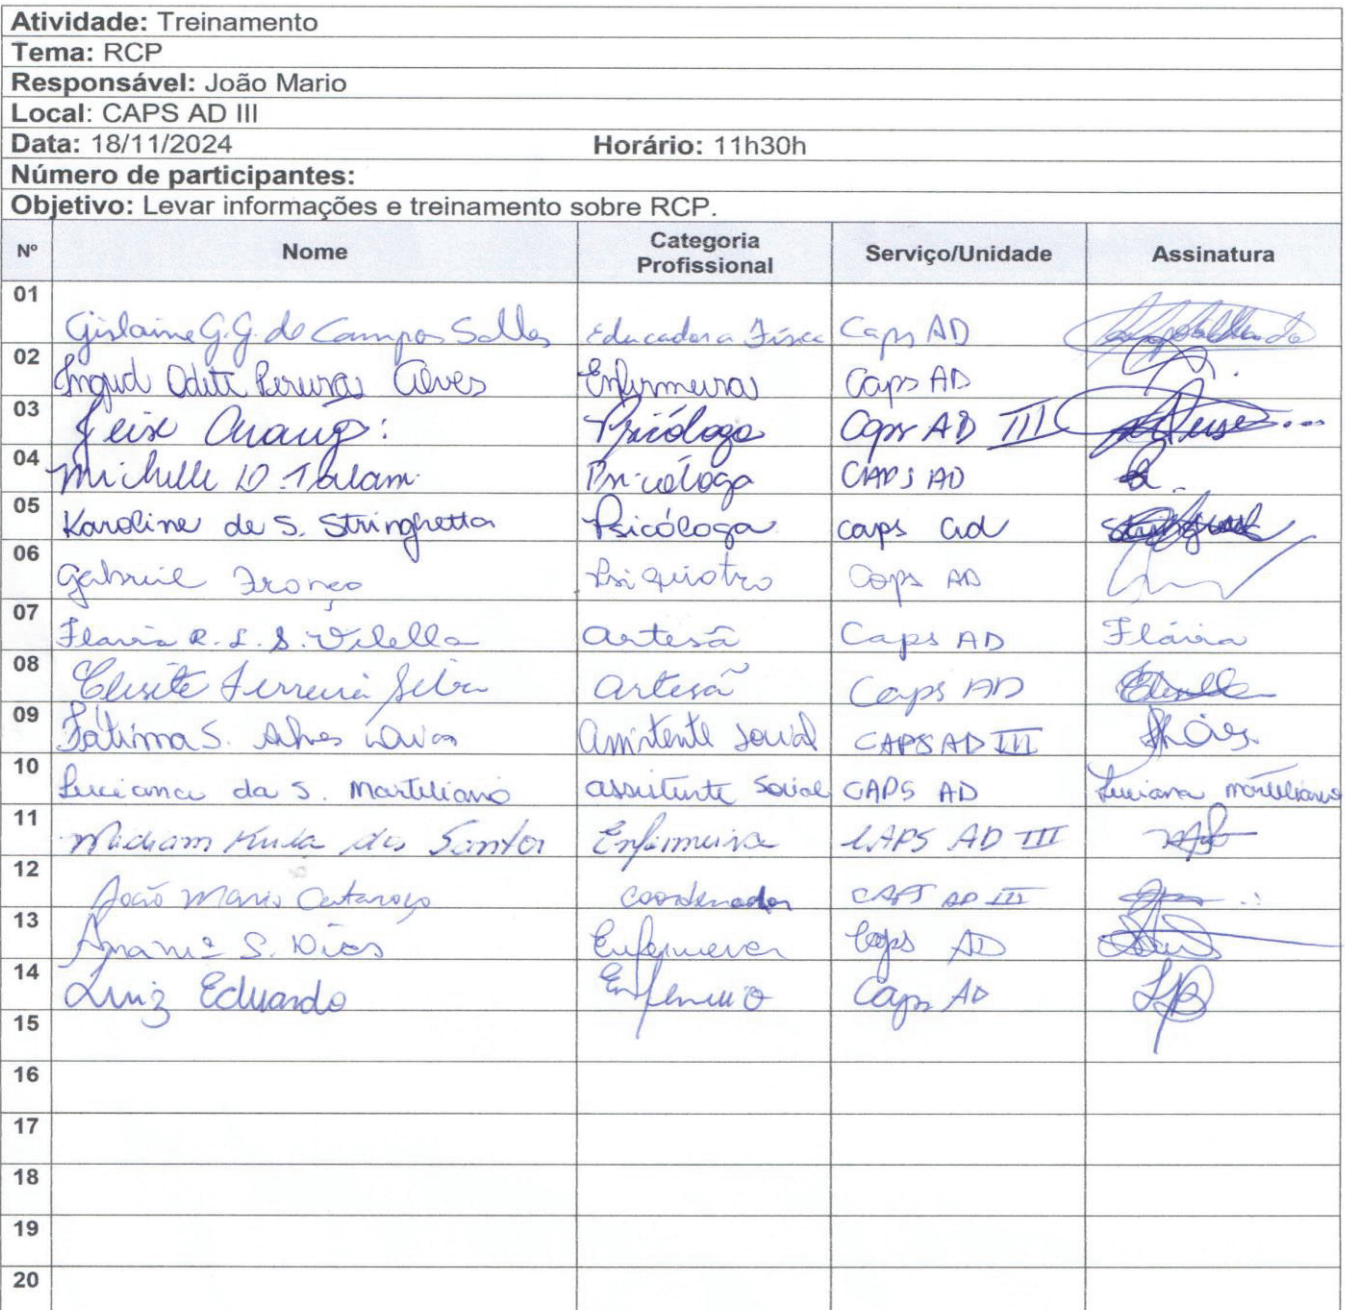 Atividade: Treinamento
Tema: RCP
Responsável: João Mario
Local: CAPS AD III
Data: 18/11/2024 Horário: 11h30h
Número de participantes:
Objetivo: Levar informações e treinamento sobre RCP.
Nº Nome Categoria Profissional Serviço/Unidade Assinatura
01 Gislaine G. G. de Campos Salles Educadora Física Caps AD
02 Ingrid Odete Pereira Alves Enfermeira Caps AD
03 Araujo Psicóloga Caps AD III
04 Michelle D. Psicóloga CAPS AD
05 Karoline de S. Stringhetta Psicóloga caps ad
06 Gabriel Franco Psiquiatra Caps AD
07 Flavia R. L. S. Vilella artesã Caps AD Flávia
08 Elisete Ferreira Silva artesã Caps AD
09 Fátima S. Alves Assistente Social CAPS AD III
10 Luciana da S. Marteliano assistente Social CAPS AD Luciana Marteliano
11 dos Santos Enfermeira CAPS AD III
12 João Mario Coordenador CAPS AD III
13 S. Dias Enfermeira Caps AD
14 Luiz Eduardo Enfermeiro Caps AD
15
16
17
18
19
20